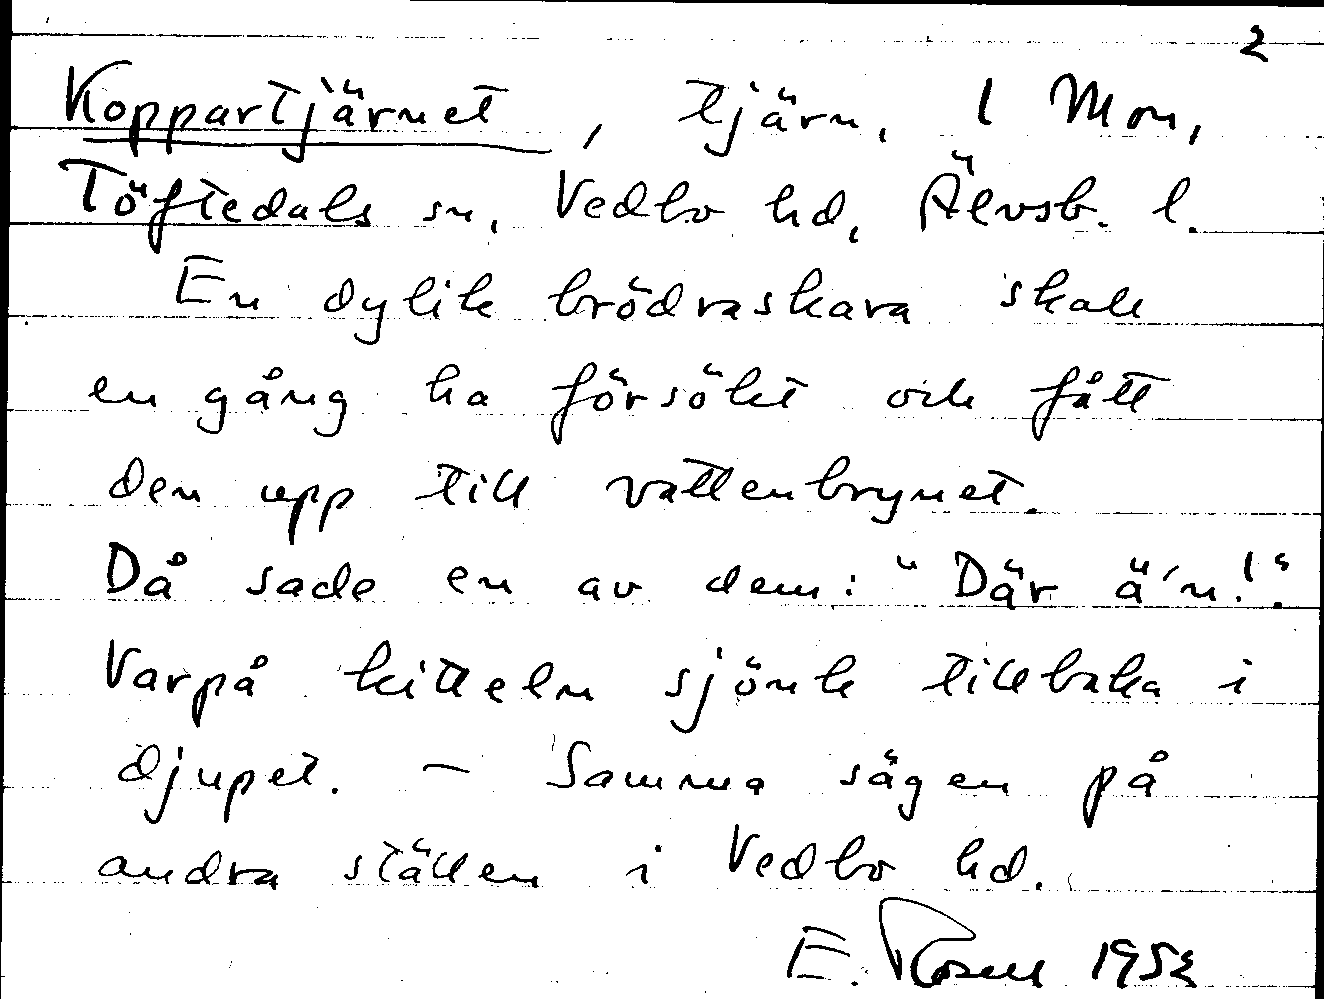 2
Koppartjärnet, tjärn, l Mon,
Töftedals sn, Vedbo hd, Älvsb. l.
En dylik brödraskara skall
en gång ha försökt och fått
den upp till vattenbrynet.
Då sade en av dem: "Där ä'n!".
Varpå kitteln sjönk tillbaka i
djupet. - Samma sägen på
andra ställen i Vedbo hd.
E. Rosell